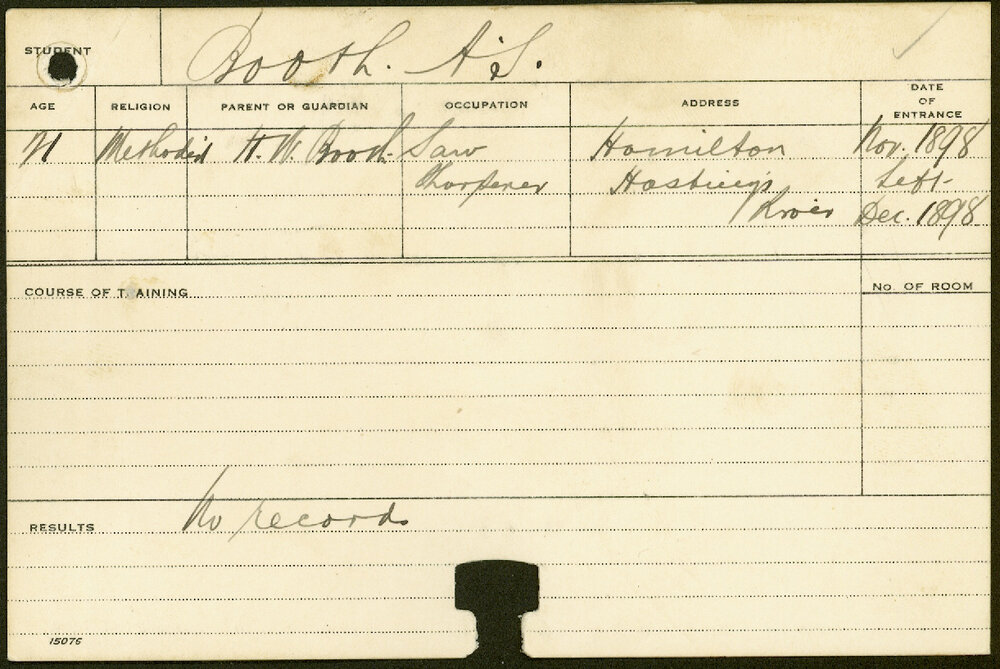 STUDENT Booth. A.S.
AGE RELIGION PARENT OR GUARDIAN OCCUPATION ADDRESS DATE OF ENTRANCE
21 Methodist H. W. Booth Saw Hamilton Nov. 1898
Sharpener Hastings Left
River Dec. 1898
COURSE OF TRAINING No. OF ROOM
RESULTS No records
15076